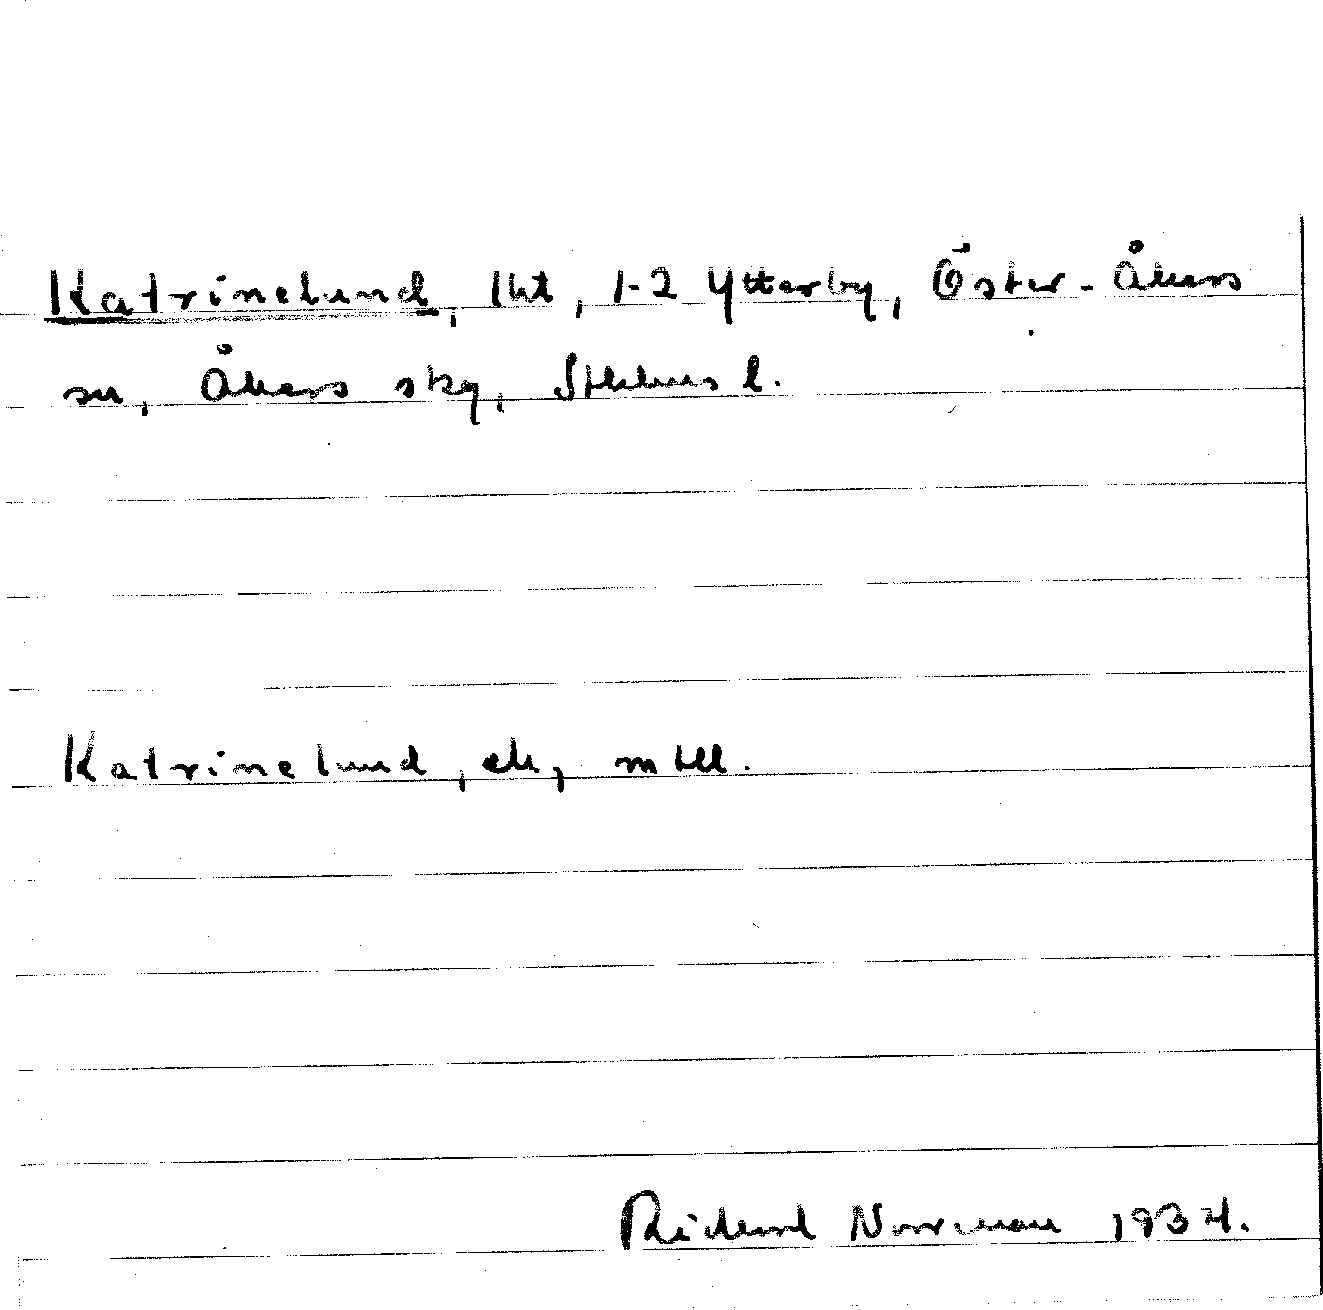 Katrinelund, lht, 1-2 Ytterby, Öster-Åkers
sn, Åkers skg, Sthlms l.
Katrinelund, ek, mtll.
Richard Norrman 1934.